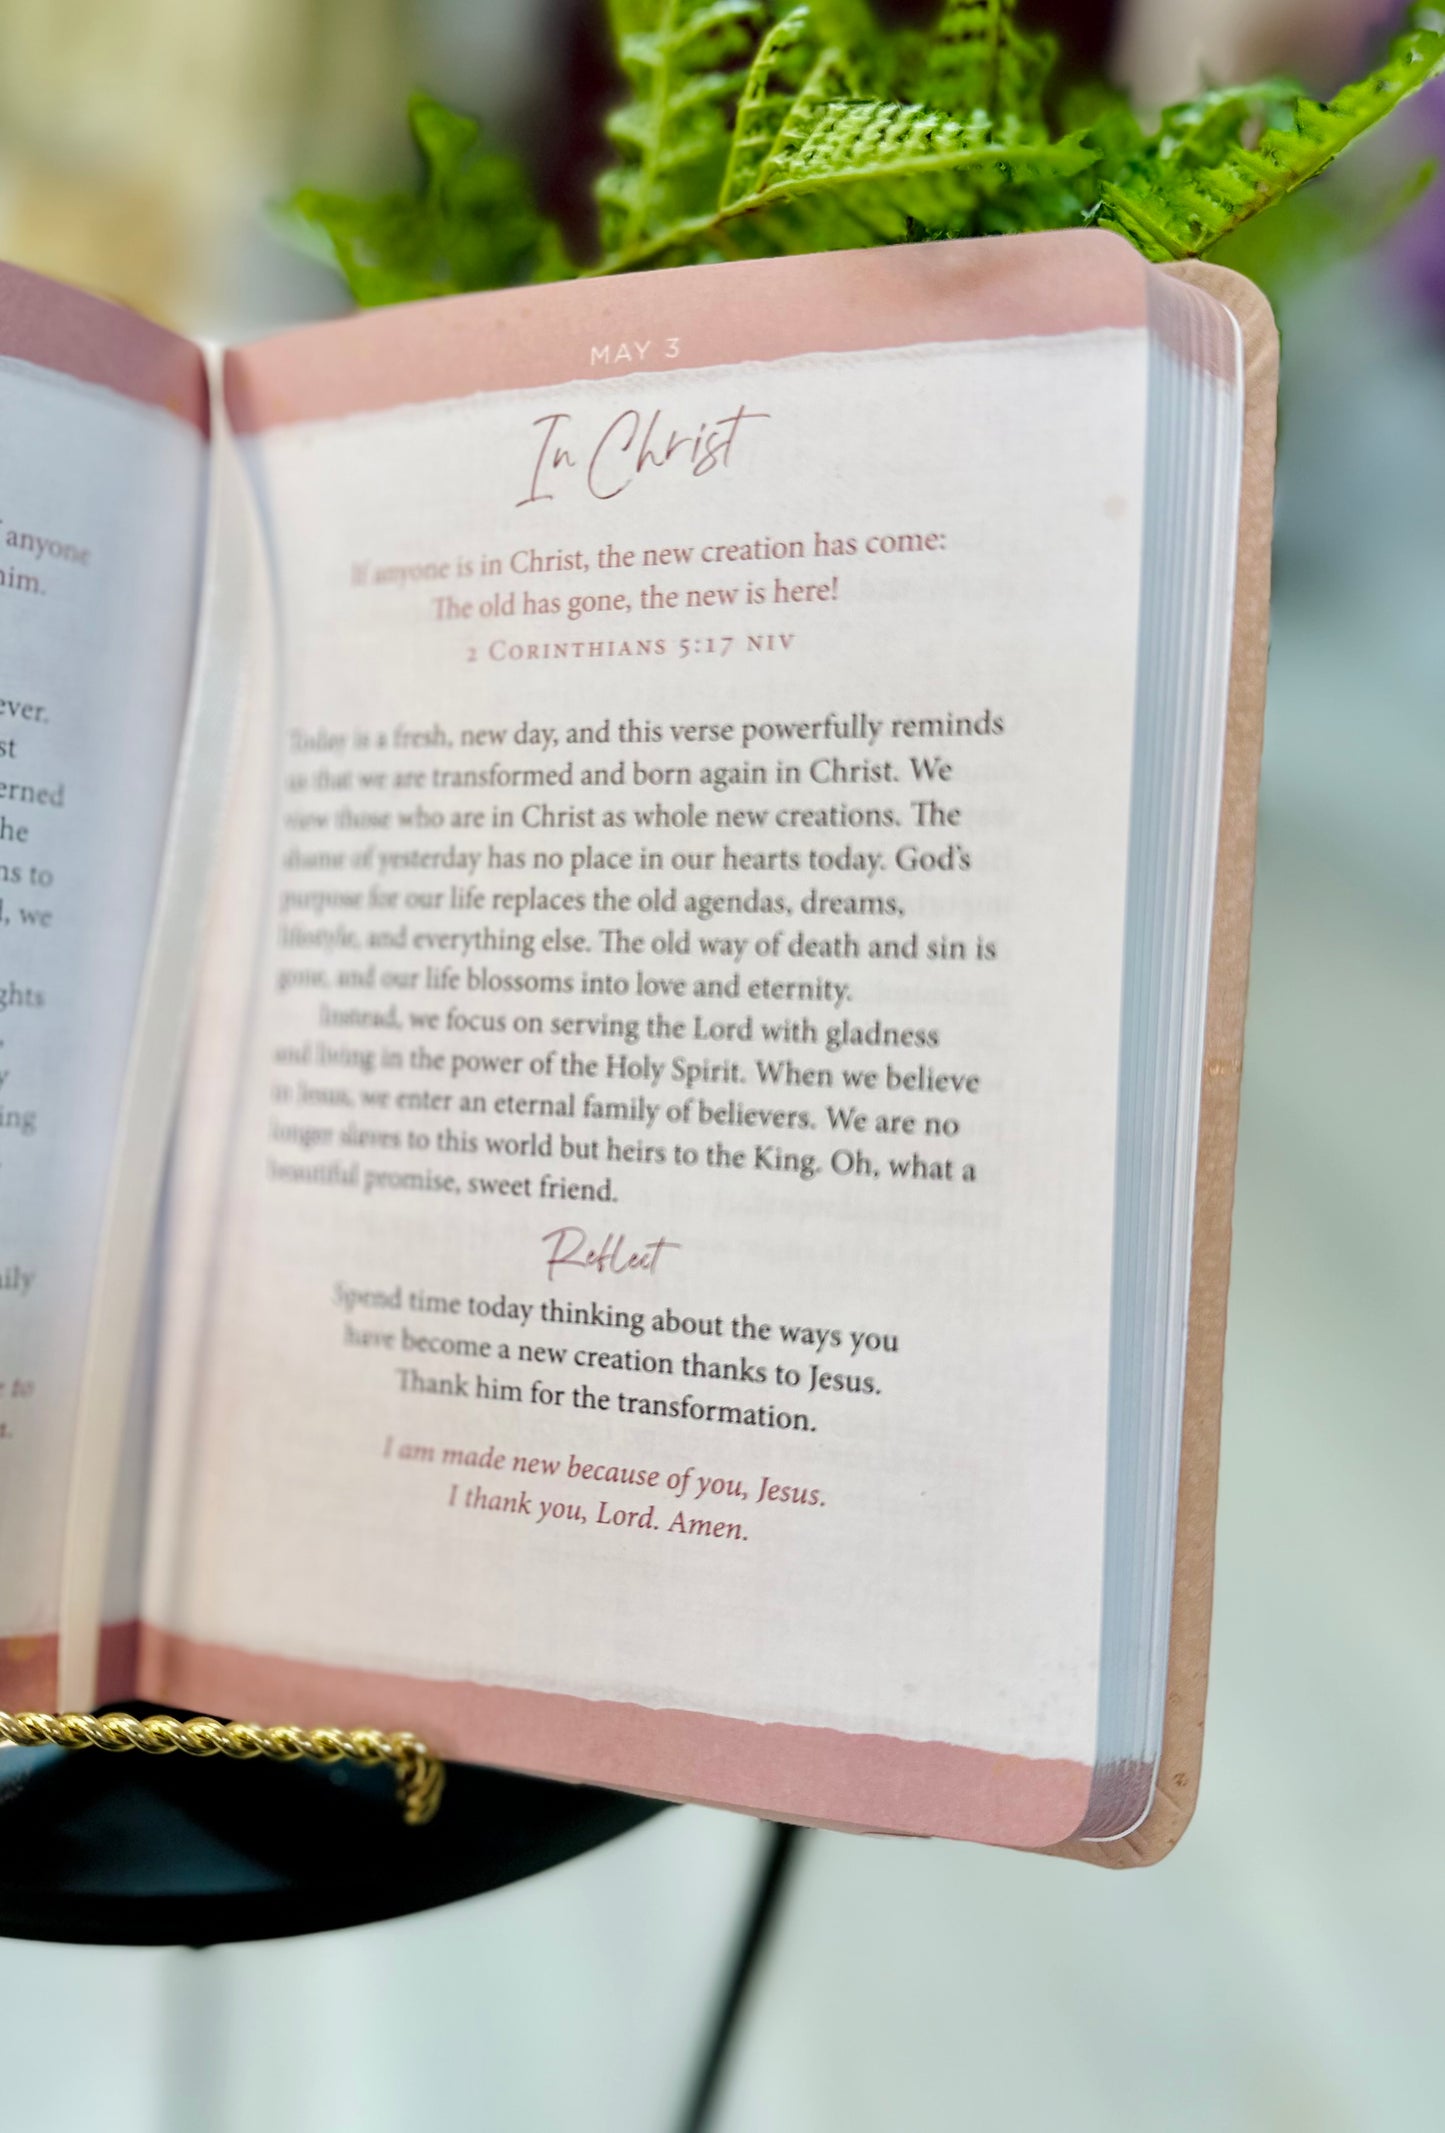 anyone
him.
ever.
st
erned
he
ns to
, we
ghts
y
ing
ily
to
MAY 3
In Christ
If anyone is in Christ, the new creation has come:
The old has gone, the new is here!
2 CORINTHIANS 5:17 NIV
Today is a fresh, new day, and this verse powerfully reminds
us that we are transformed and born again in Christ. We
view those who are in Christ as whole new creations. The
shame of yesterday has no place in our hearts today. God's
purpose for our life replaces the old agendas, dreams,
lifestyle, and everything else. The old way of death and sin is
gone, and our life blossoms into love and eternity.
Instead, we focus on serving the Lord with gladness
and living in the power of the Holy Spirit. When we believe
in Jesus, we enter an eternal family of believers. We are no
longer slaves to this world but heirs to the King. Oh, what a
beautiful promise, sweet friend.
Reflect
Spend time today thinking about the ways you
have become a new creation thanks to Jesus.
Thank him for the transformation.
I am made new because of you, Jesus.
I thank you, Lord. Amen.